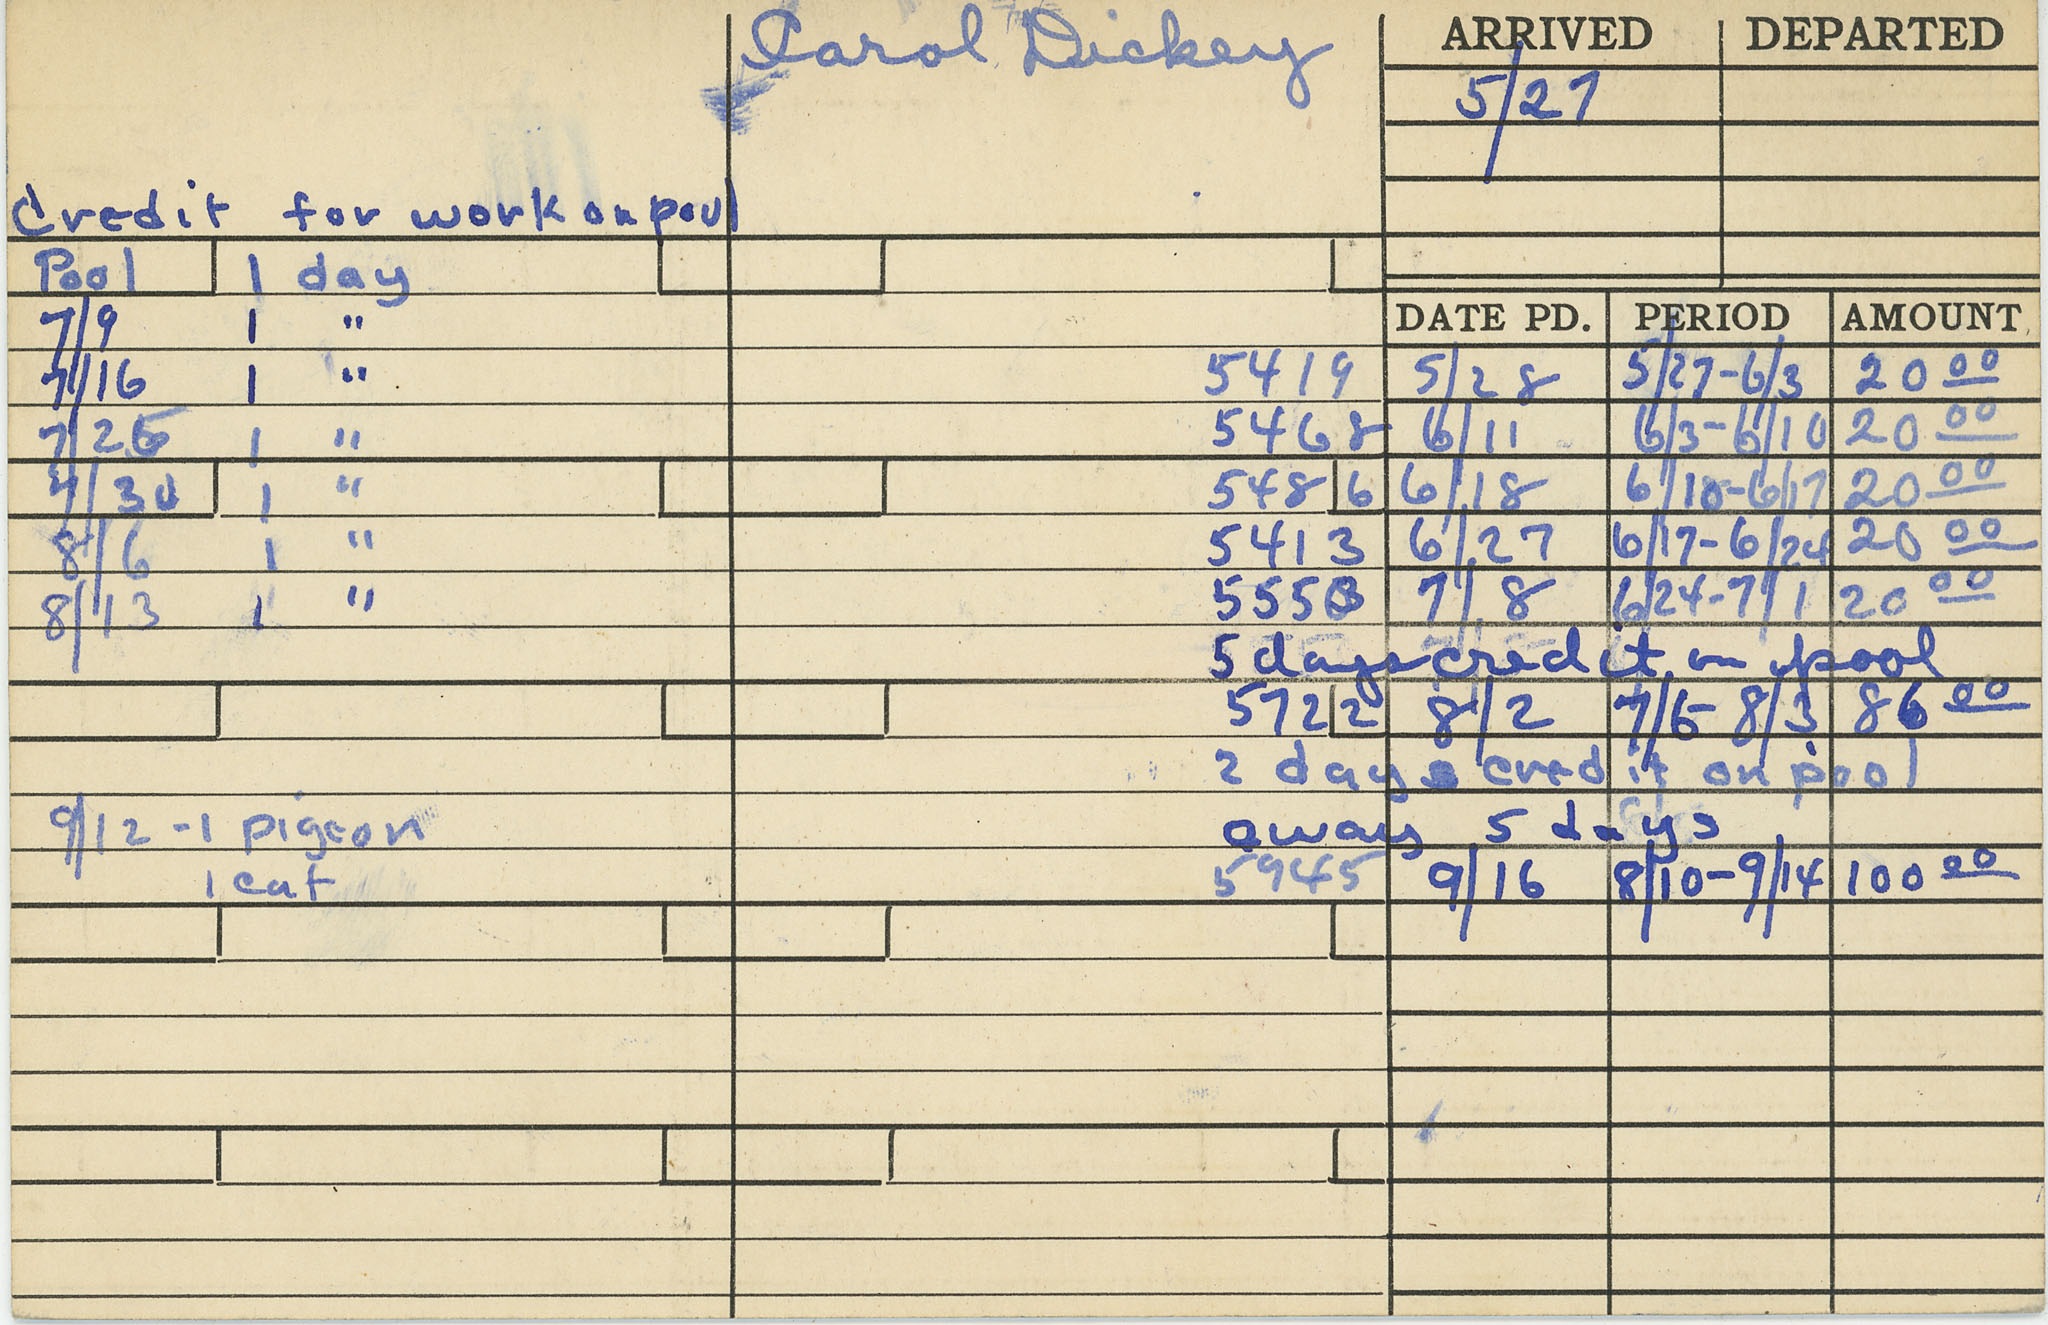 Carol Dickey
ARRIVED DEPARTED
5/27
Credit for work on pool
Pool 1 day
7/9 1 "
7/16 1 "
7/25 1 "
7/30 1 "
8/6 1 "
8/13 1 "
9/12 - 1 pigeon
1 cat
DATE PD. PERIOD AMOUNT
5419 5/28 5/27-6/3 20 00
5468 6/11 6/3-6/10 20 00
5486 6/18 6/10-6/17 20 00
5413 6/27 6/17-6/24 20 00
5553 7/8 6/24-7/1 20 00
5 days credit on pool
5722 8/2 7/6-8/3 86 00
2 days credit on pool
away 5 days
5945 9/16 8/10-9/14 100 00